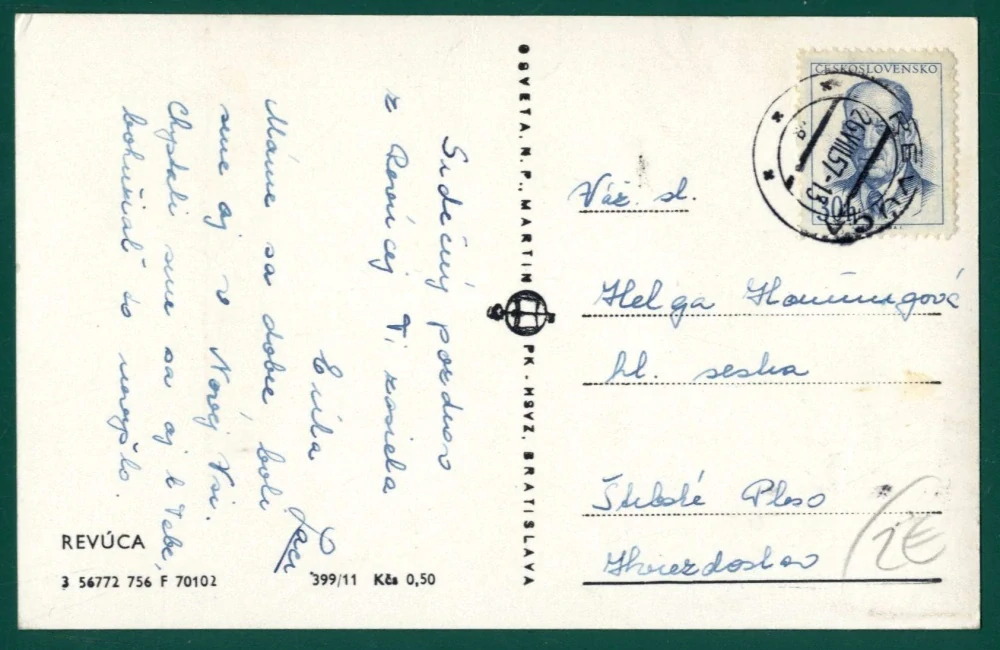 Srdečný pozdrav
z Revúcej Ti zasiela
Evika
Laci
Máme sa dobre, boli
sme aj v Novej Vsi.
Chystali sme sa aj k Tebe,
bohužiaľ to nevyšlo.
REVÚCA
3 56772 756 F 70102
399/11 Kčs 0,50
OSVETA, N. P., MARTIN
PK - HSVZ. BRATISLAVA
ČESKOSLOVENSKO
30h
REVÚCA
26.VII.57-13
Váž. sl.
Helga
hl. sestra
Štrbské Pleso
Hviezdoslav
2€